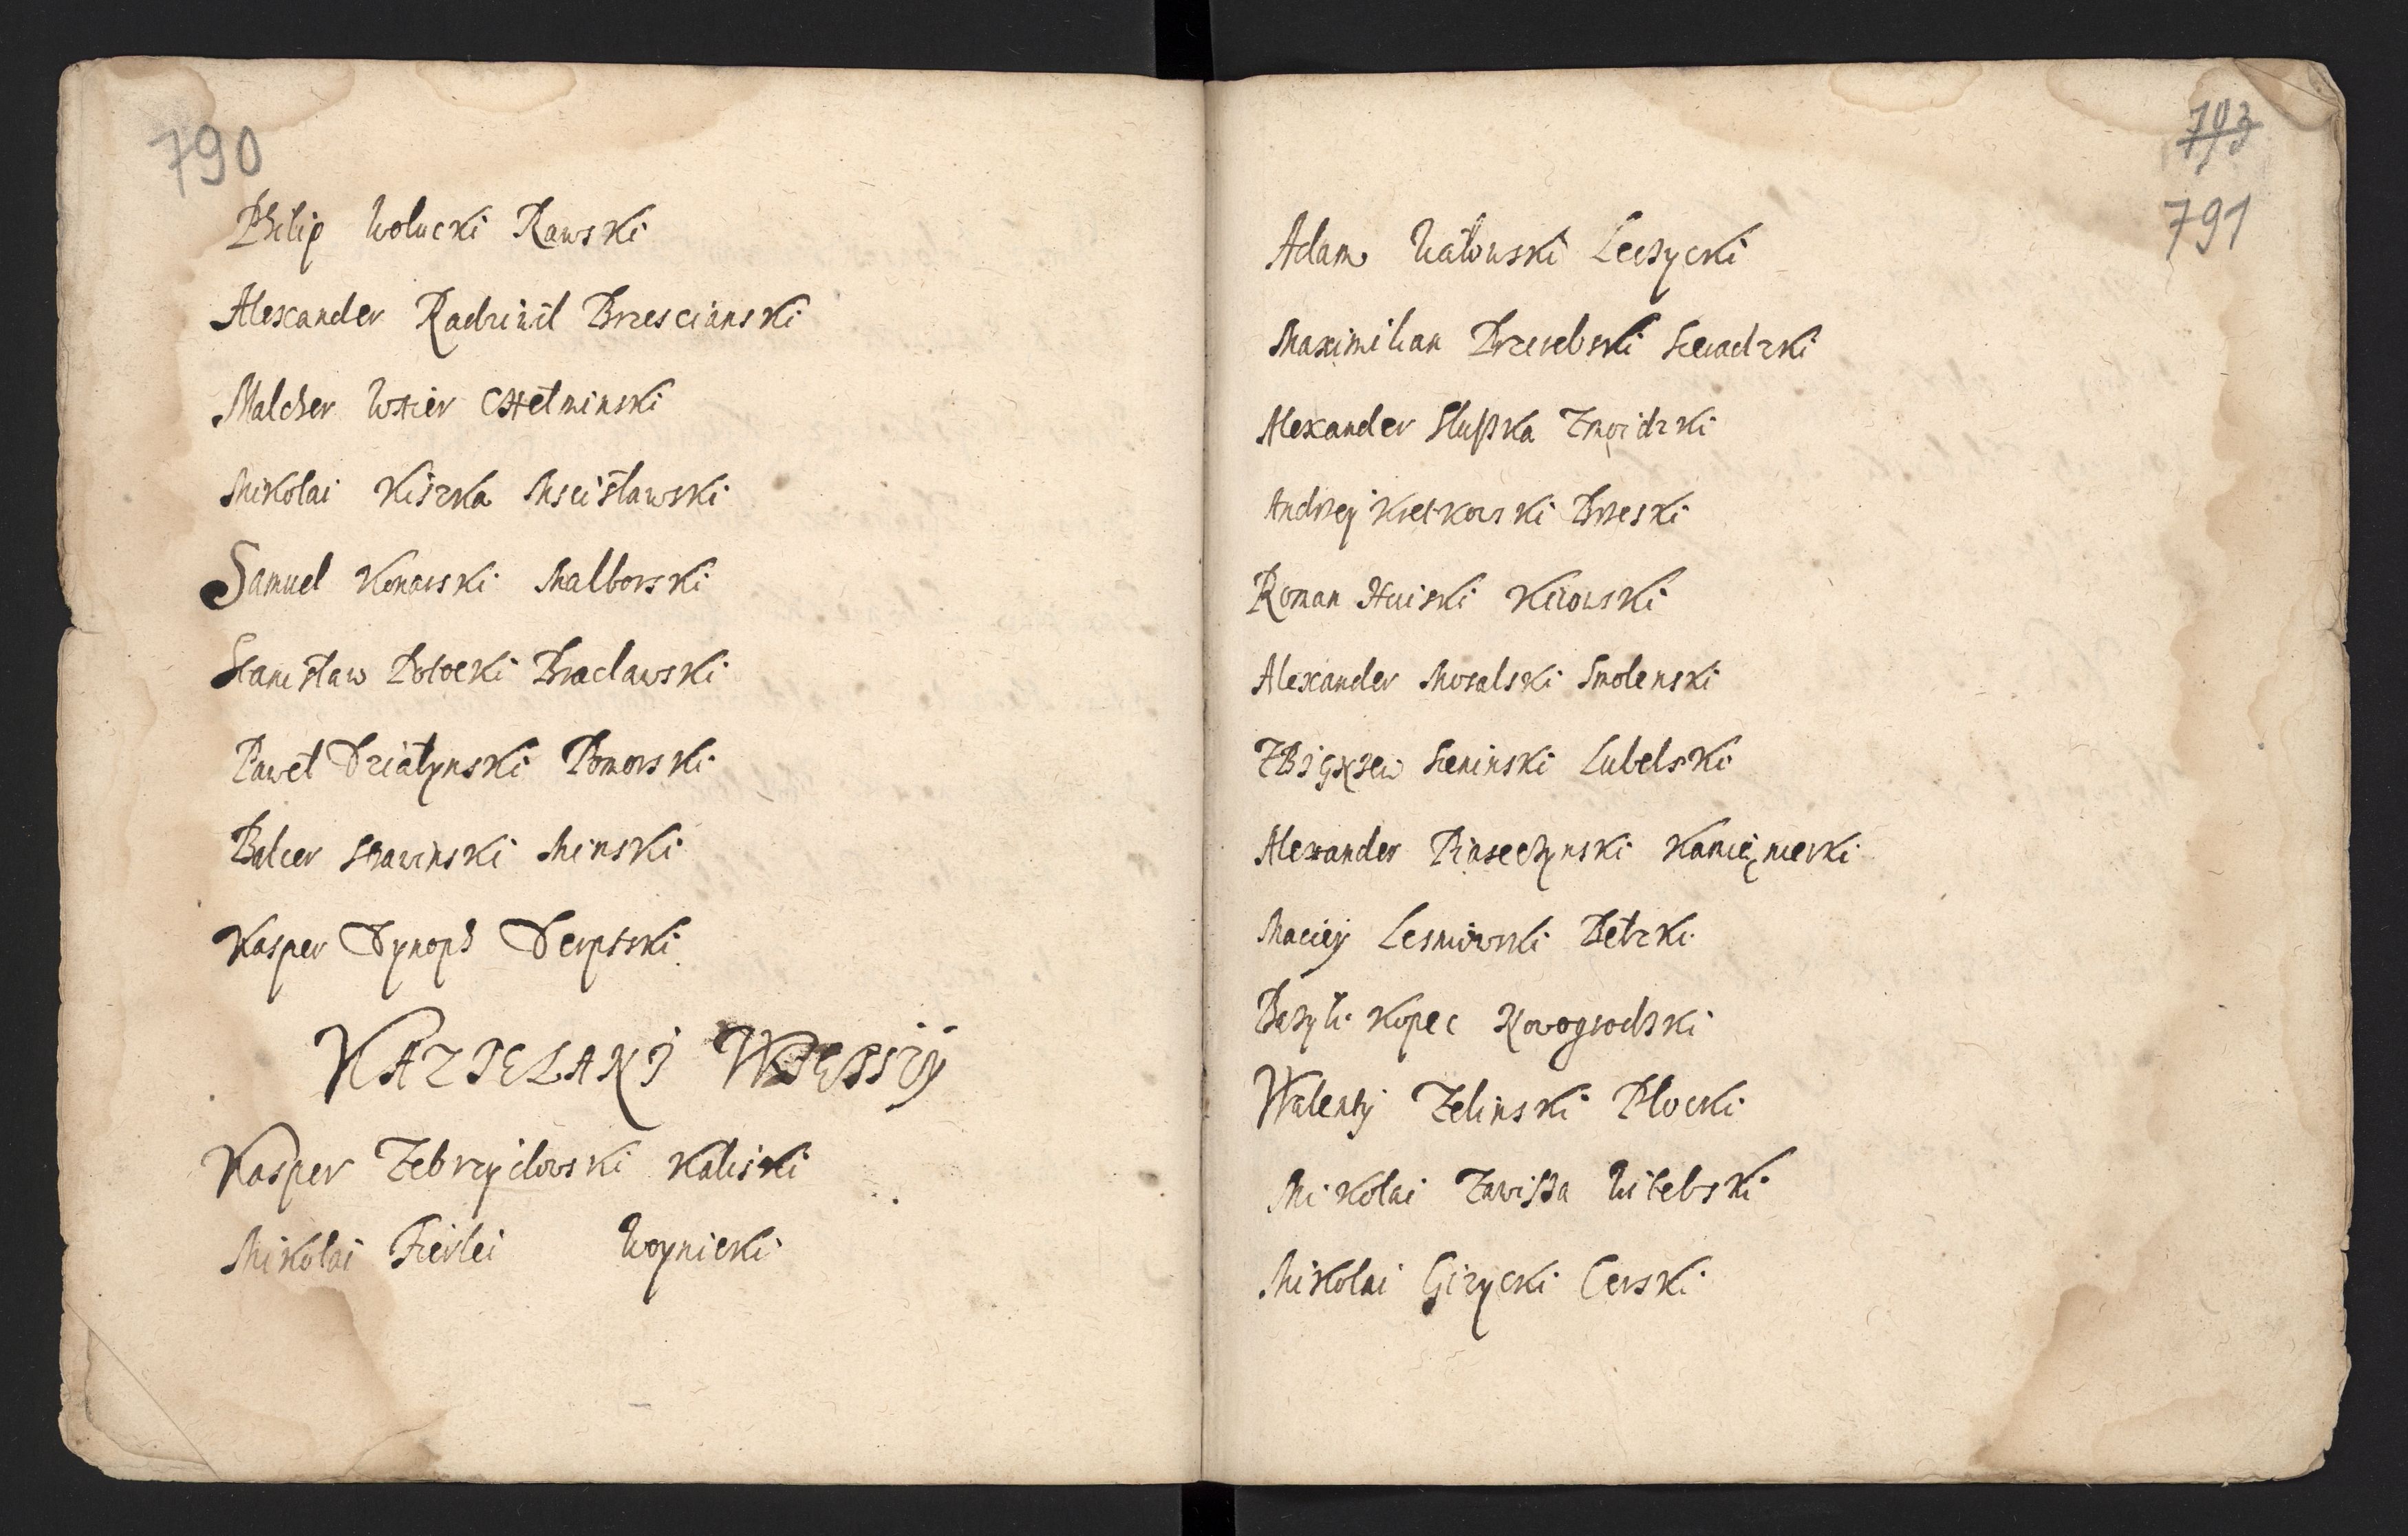 790
Philip Wolucki Rawski
Alexander Radziwil Brzescianski
Malcher Wher Chełminski
Mikołai Kiszka Mscisławski
Samuel Konarski Malborski
Stanisław Potocki Braclawski
Paweł Działynski Pomorski
Balcer Strawinski Minski
Kasper Dynoph Derptski
KAZTELANJ WJĘKSZY
Kasper Zebrzydowski Kaliski
Mikołai Firlei Woynicki
793
791
Adam Walowski Leczycki
Maximilian Przerebski Sieradzki
Alexander Słuszka Zmoidzki
Andrzey Kretkowski Brzeski
Roman Hoiski Kiiowski
Alexander Mosalski Smolenski
ZBIGNIEW Sieninski Lubelski
Alexander Piaseczynski Kamięniecki
Maciey Lesniowski Bełzki
Bazyli Kopec Nowogrodzki
Walenty Zelinski Plocki
Mikołai Zawisza Witebski
Mikołai Gizycki Cerski